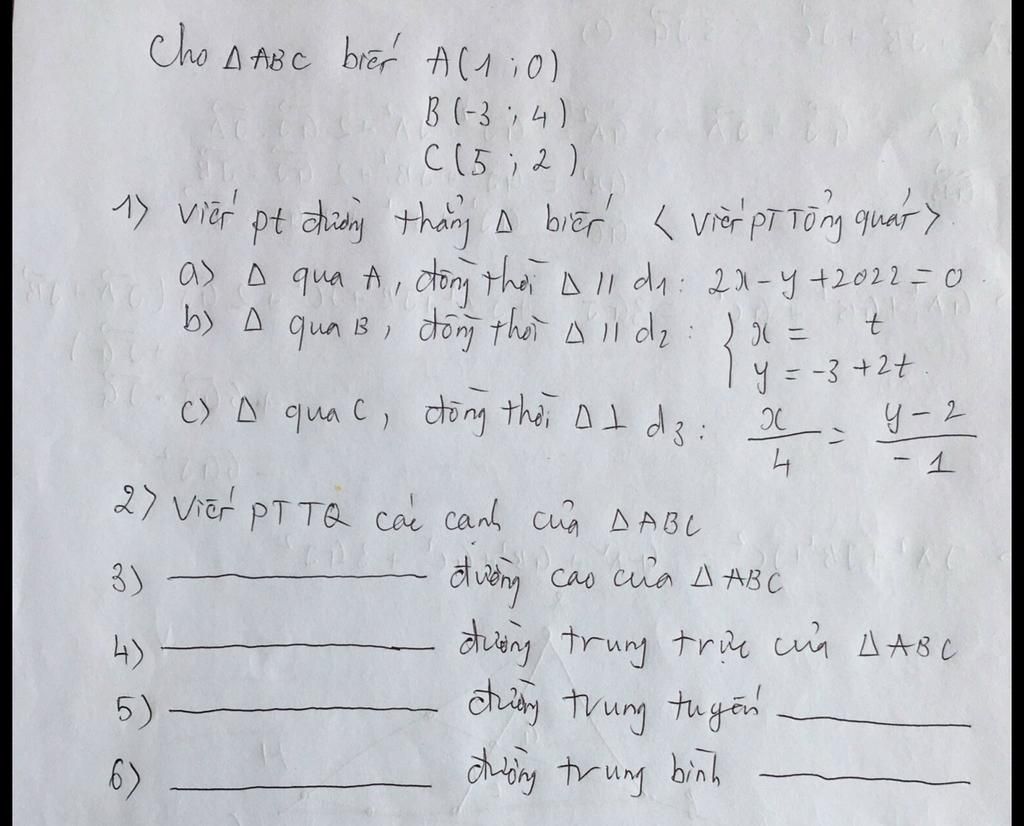 Cho Δ ABC biết A(1 ; 0)
B(-3 ; 4)
C(5 ; 2)
1> Viết pt đường thẳng Δ biết < viết PT Tổng quát >.
a> Δ qua A, đồng thời Δ // d1 : 2x - y + 2022 = 0.
b> Δ qua B, đồng thời Δ // d2 : { x = t
y = -3 + 2t.
c> Δ qua C, đồng thời Δ ⊥ d3 : x/4 = (y - 2)/-1
2> Viết PTTQ các cạnh của Δ ABC
3) ———— đường cao của Δ ABC
4) ———— đường trung trực của Δ ABC
5) ———— đường trung tuyến ————
6) ———— đường trung bình ————